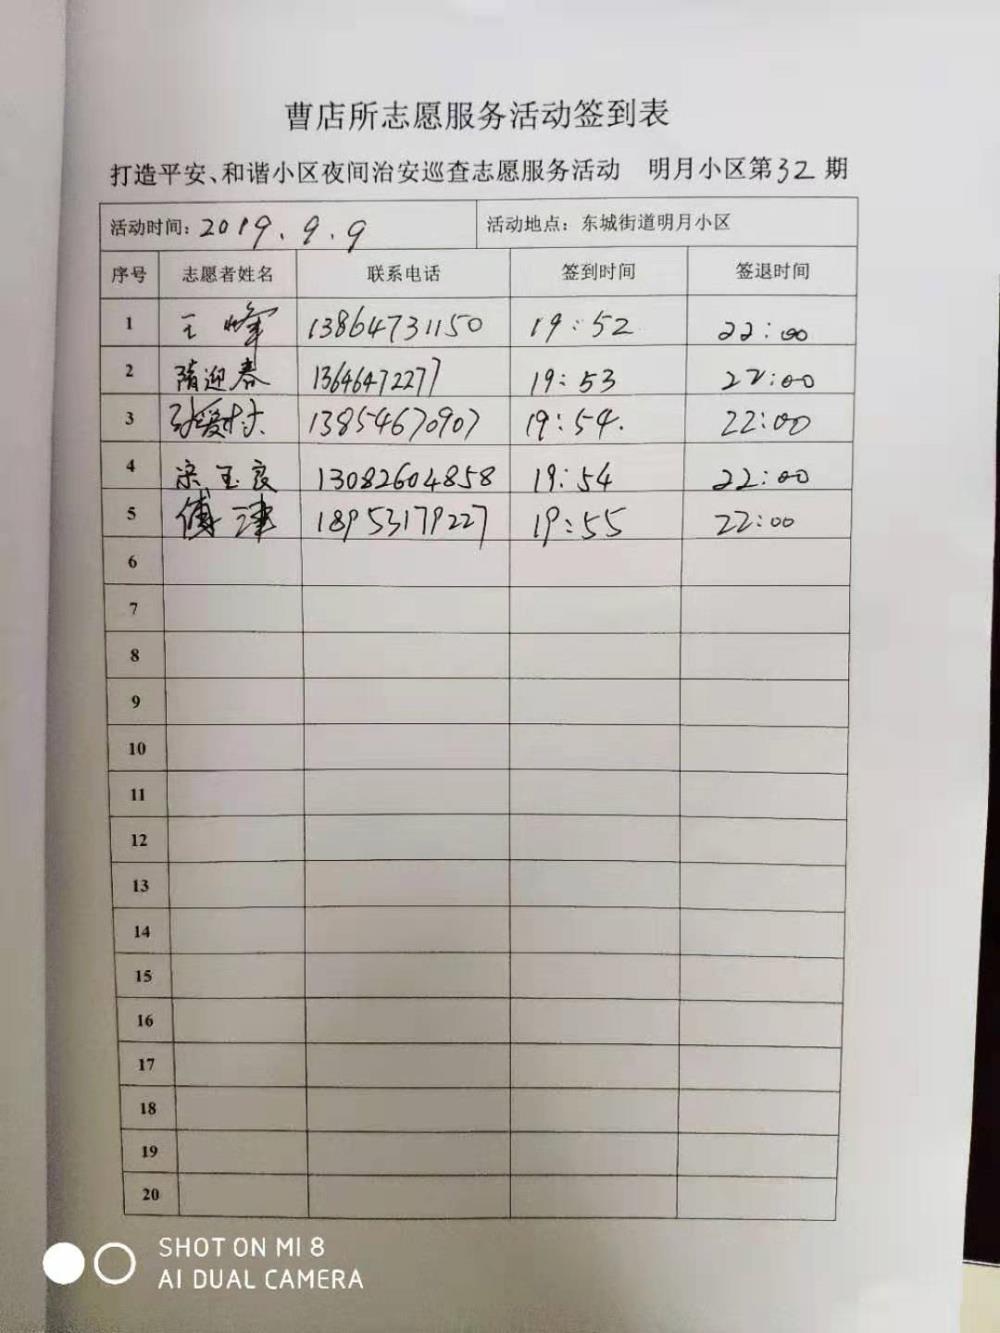 曹店所志愿服务活动签到表
打造平安、和谐小区夜间治安巡查志愿服务活动 明月小区第32期
活动时间：2019.9.9 活动地点：东城街道明月小区
序号 志愿者姓名 联系电话 签到时间 签退时间
1 王峰 13864731150 19:52 22:00
2 隋迎春 13646472277 19:53 22:00
3 13854670907 19:54. 22:00
4 宋玉良 13082604858 19:54 22:00
5 傅津 18953179227 19:55 22:00
6
7
8
9
10
11
12
13
14
15
16
17
18
19
20
SHOT ON MI 8
AI DUAL CAMERA